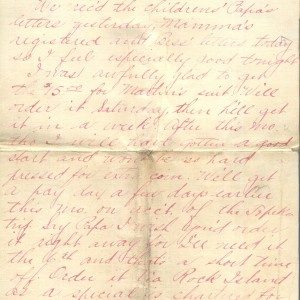 We rec'd the childrens' Papa's
letters yesterday, Mamma's
registered and Bess' letters today
so I feel especially good tonight
I was awfully glad to get
the $5.00 for Martin's suit. Will
order it Saturday, then he'll get
it in a week. After this mo.
then I will have gotten a good
start and won't be so hard
pressed for coin. We'll get
a pay day a full days earlier
this mo. on acc't. of the Topeka
trip. Say Papa I wish you'd order
it right away for I'll need it
the 6th and thats a short time
off. Order it via Rock Island
as a special is chartered for